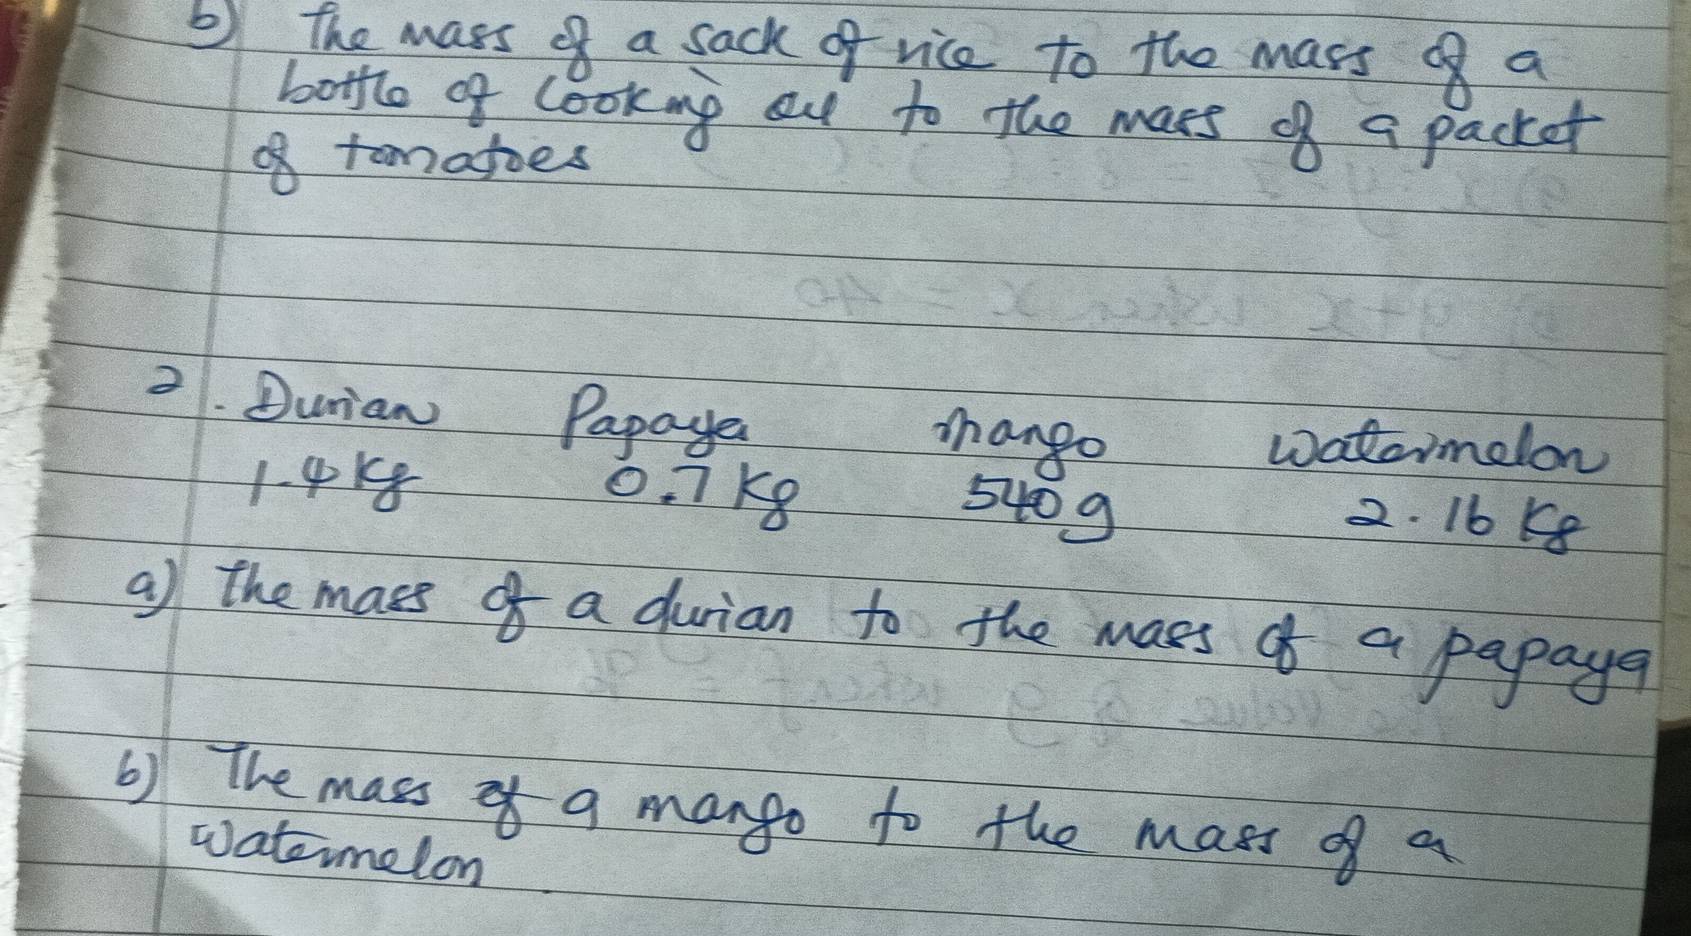 b) The mass of a sack of rice to the mass of a
bottle of cooking oil to the mass of a packet
of tomatoes
2. Durian Papaya Mango Watermelon
1.4 kg 0.7 kg 540 g 2.16 kg
a) The mass of a durian to the mass of a papaya
b) The mass of a mango to the mass of a
watermelon